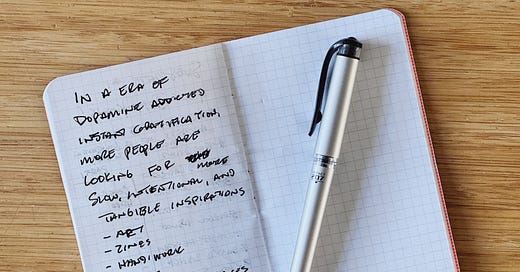 IN A ERA OF
DOPAMINE ADDICTED
INSTANT GRATIFICATION,
MORE PEOPLE ARE
LOOKING FOR MORE
SLOW, INTENTIONAL, AND
TANGIBLE INSPIRATIONS
- ART
- ZINES
- HANDIWORK